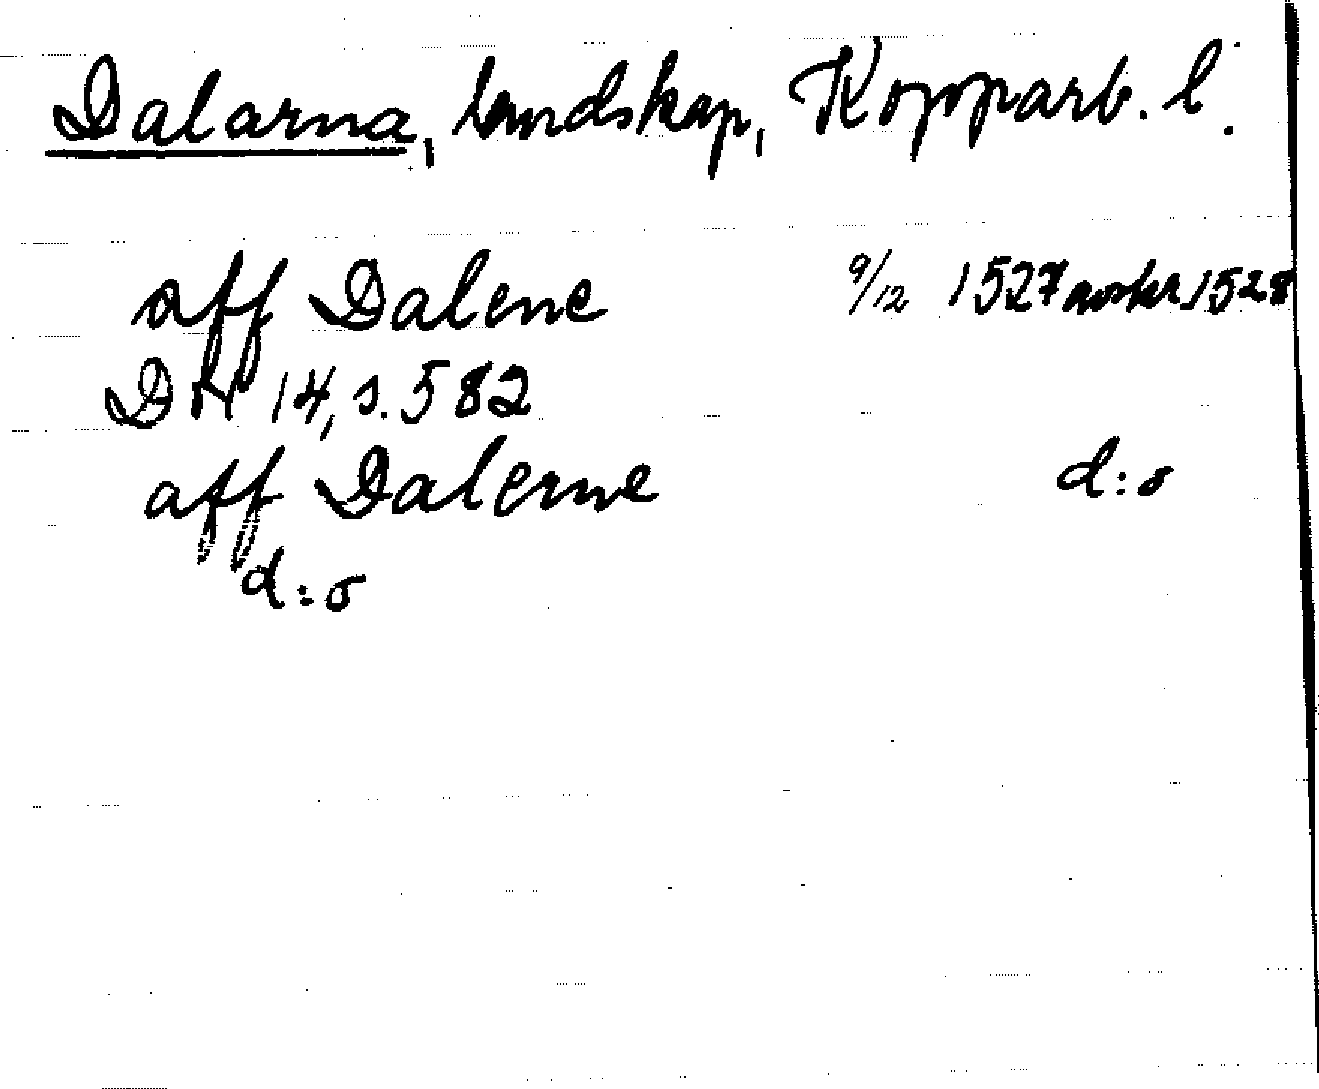 Dalarna, landskap, Kopparb. l.
aff Dalene 9/12 1527 avskr. 1528
DN 14, s. 582
aff Dalerne d:o
d:o